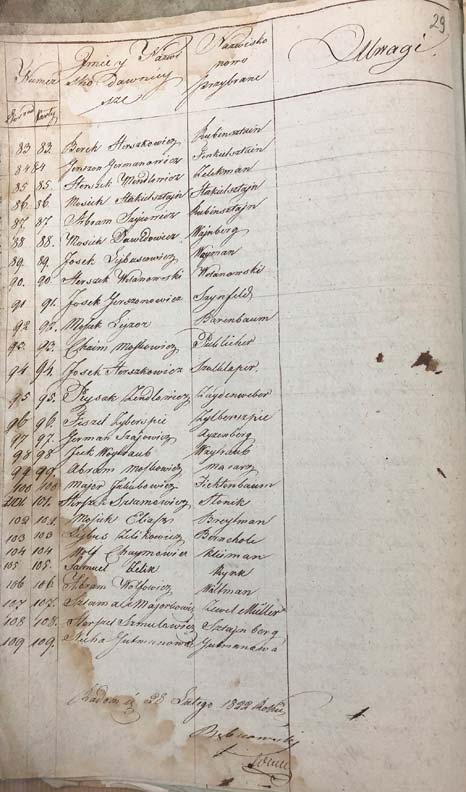 29
Numer Imie y Nazwi Nazwisko Uwagi
sko Dawniey nowo
sze przybrane
Karty
83 83. Berek Herszkowicz Rubinsztein
84 84 Jerszon Germanowicz Finkielsztein
85 85. Herszek Mendlowicz Zelekman
86. 86. Mosiek Stakulsztajn Stakulsztajn
87. 87. Abram Rubinsztajn
88 88. Mosiek Dawidowicz Wajnberg
89. 89. Josek Lejbusiowicz Wayman
90. 90. Herszek Wolanowski Wolanowski
91 91. Josek Jerszonowicz Szynfeld
92 92. Mosiek Barenbaum
93. 93. Chaim Moskowicz Publicher
94 94. Josek Herszkowicz Szalklaper
95 95. Zendlowicz Zaydenweber
96 96. Fiszel Zyberszpic Zylberszpic
97 97. Herman Szajowicz Ayzenberg
98 98. Icek Waytraub Waytraub
99 99. Abram Moskowicz Macarz
100 100 Major Jakubowicz Fichtenbaum
101 101. Herszek Szlamowicz Słonik
102 102. Mosiek Eliasz Breytman
103 103 Leybus Zelikowicz
104 104 Wolf Chaymowicz Kleiman
105 105. Samuel Zelik Rynk
106 106. Abram Wolfowicz Waltman
107 107. Szlama Majorkowicz Zewel Müller
108 108. Herszel Szmulewicz Sztajnberg
109. 109. Gutmanowa Gutmanowa
Radom d 28 Lutego 1822 Roku